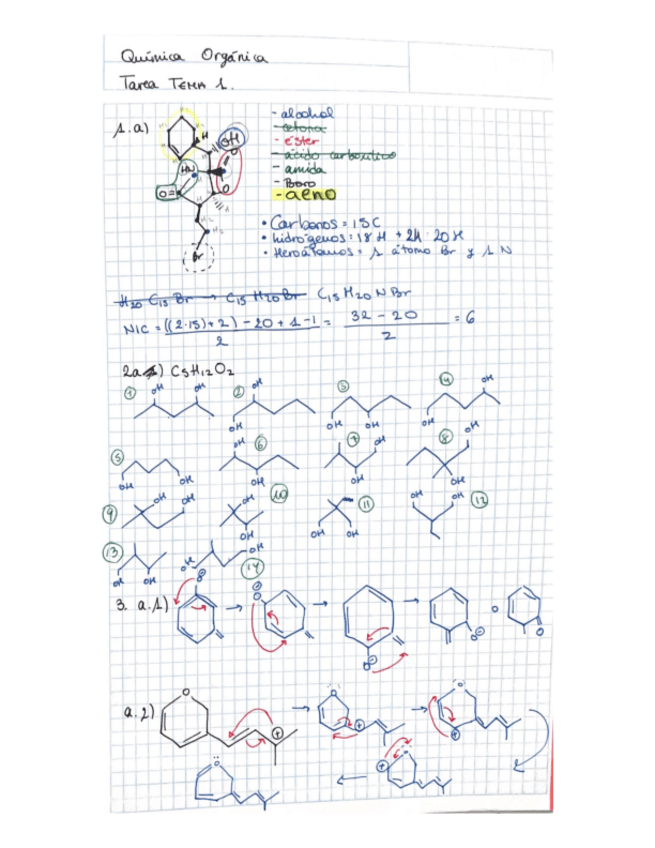 Química Orgánica
Tarea TEMA 1.
1. a)
- alcohol
- cetona
- éster
- ácido carboxílico
- amida
- Bromo
- aeno
H
OH
O
HN
O
O=
Br
• Carbonos = 15C
• hidrógenos = 18H + 2H = 20H
• Heroátomos = 1 átomo Br y 1 N
H20 C15 Br → C15 H20 Br C15 H20 N Br
NIC = ((2·15)+2) - 20 + 1 - 1 / 2 = 32 - 20 / 2 = 6
2a.1) C5H12O2
① OH OH ② OH OH ③ OH OH ④ OH OH
⑤ OH OH ⑥ OH OH ⑦ OH OH ⑧ OH OH
⑨ OH OH ⑩ OH OH ⑪ OH OH ⑫ OH OH
⑬ OH OH ⑭ OH OH
3. a.1) → → → o
a.2) O → →